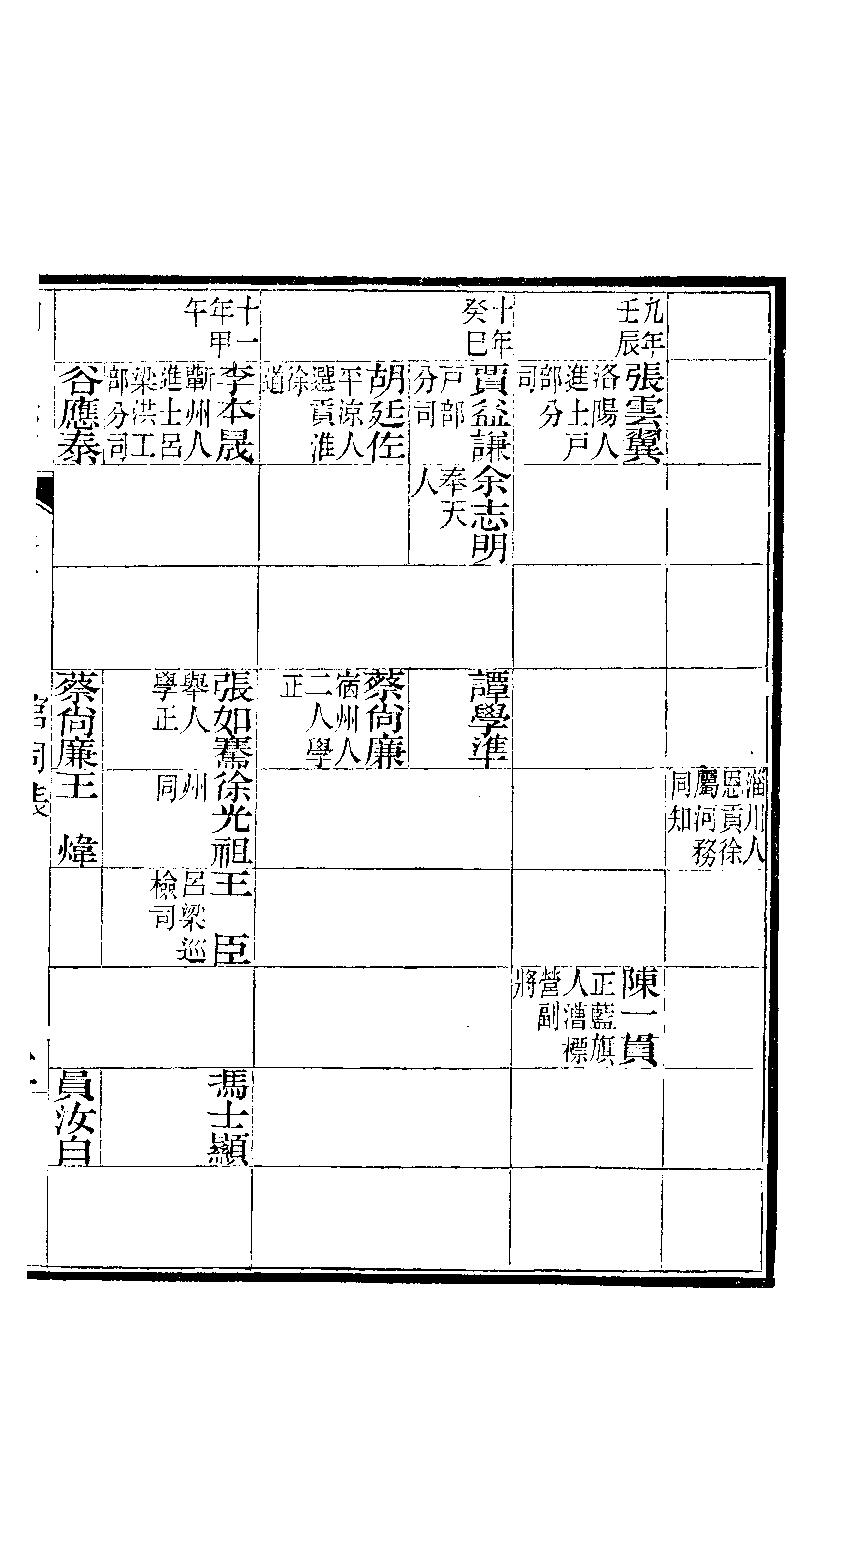 淄川人
恩貢徐
屬河務
同知
九年
壬辰
張雲翼
洛陽人
進士戶
部分
司
陳一貫
正藍旗
人漕標
營副
將
十年
癸巳
賈益謙
戶部
分司
余志明
奉天
人
譚學準
胡廷佐
平涼人
選貢淮
徐
道
蔡尙廉
宿州人
二人學
正
十一
年甲
午
李本晟
蘄州人
進士呂
梁洪工
部分司
張如騫
舉人
學正
徐光祖
州
同
王臣
呂梁巡
檢司
馮士顯
谷應泰
蔡尙廉
王煒
員汝白